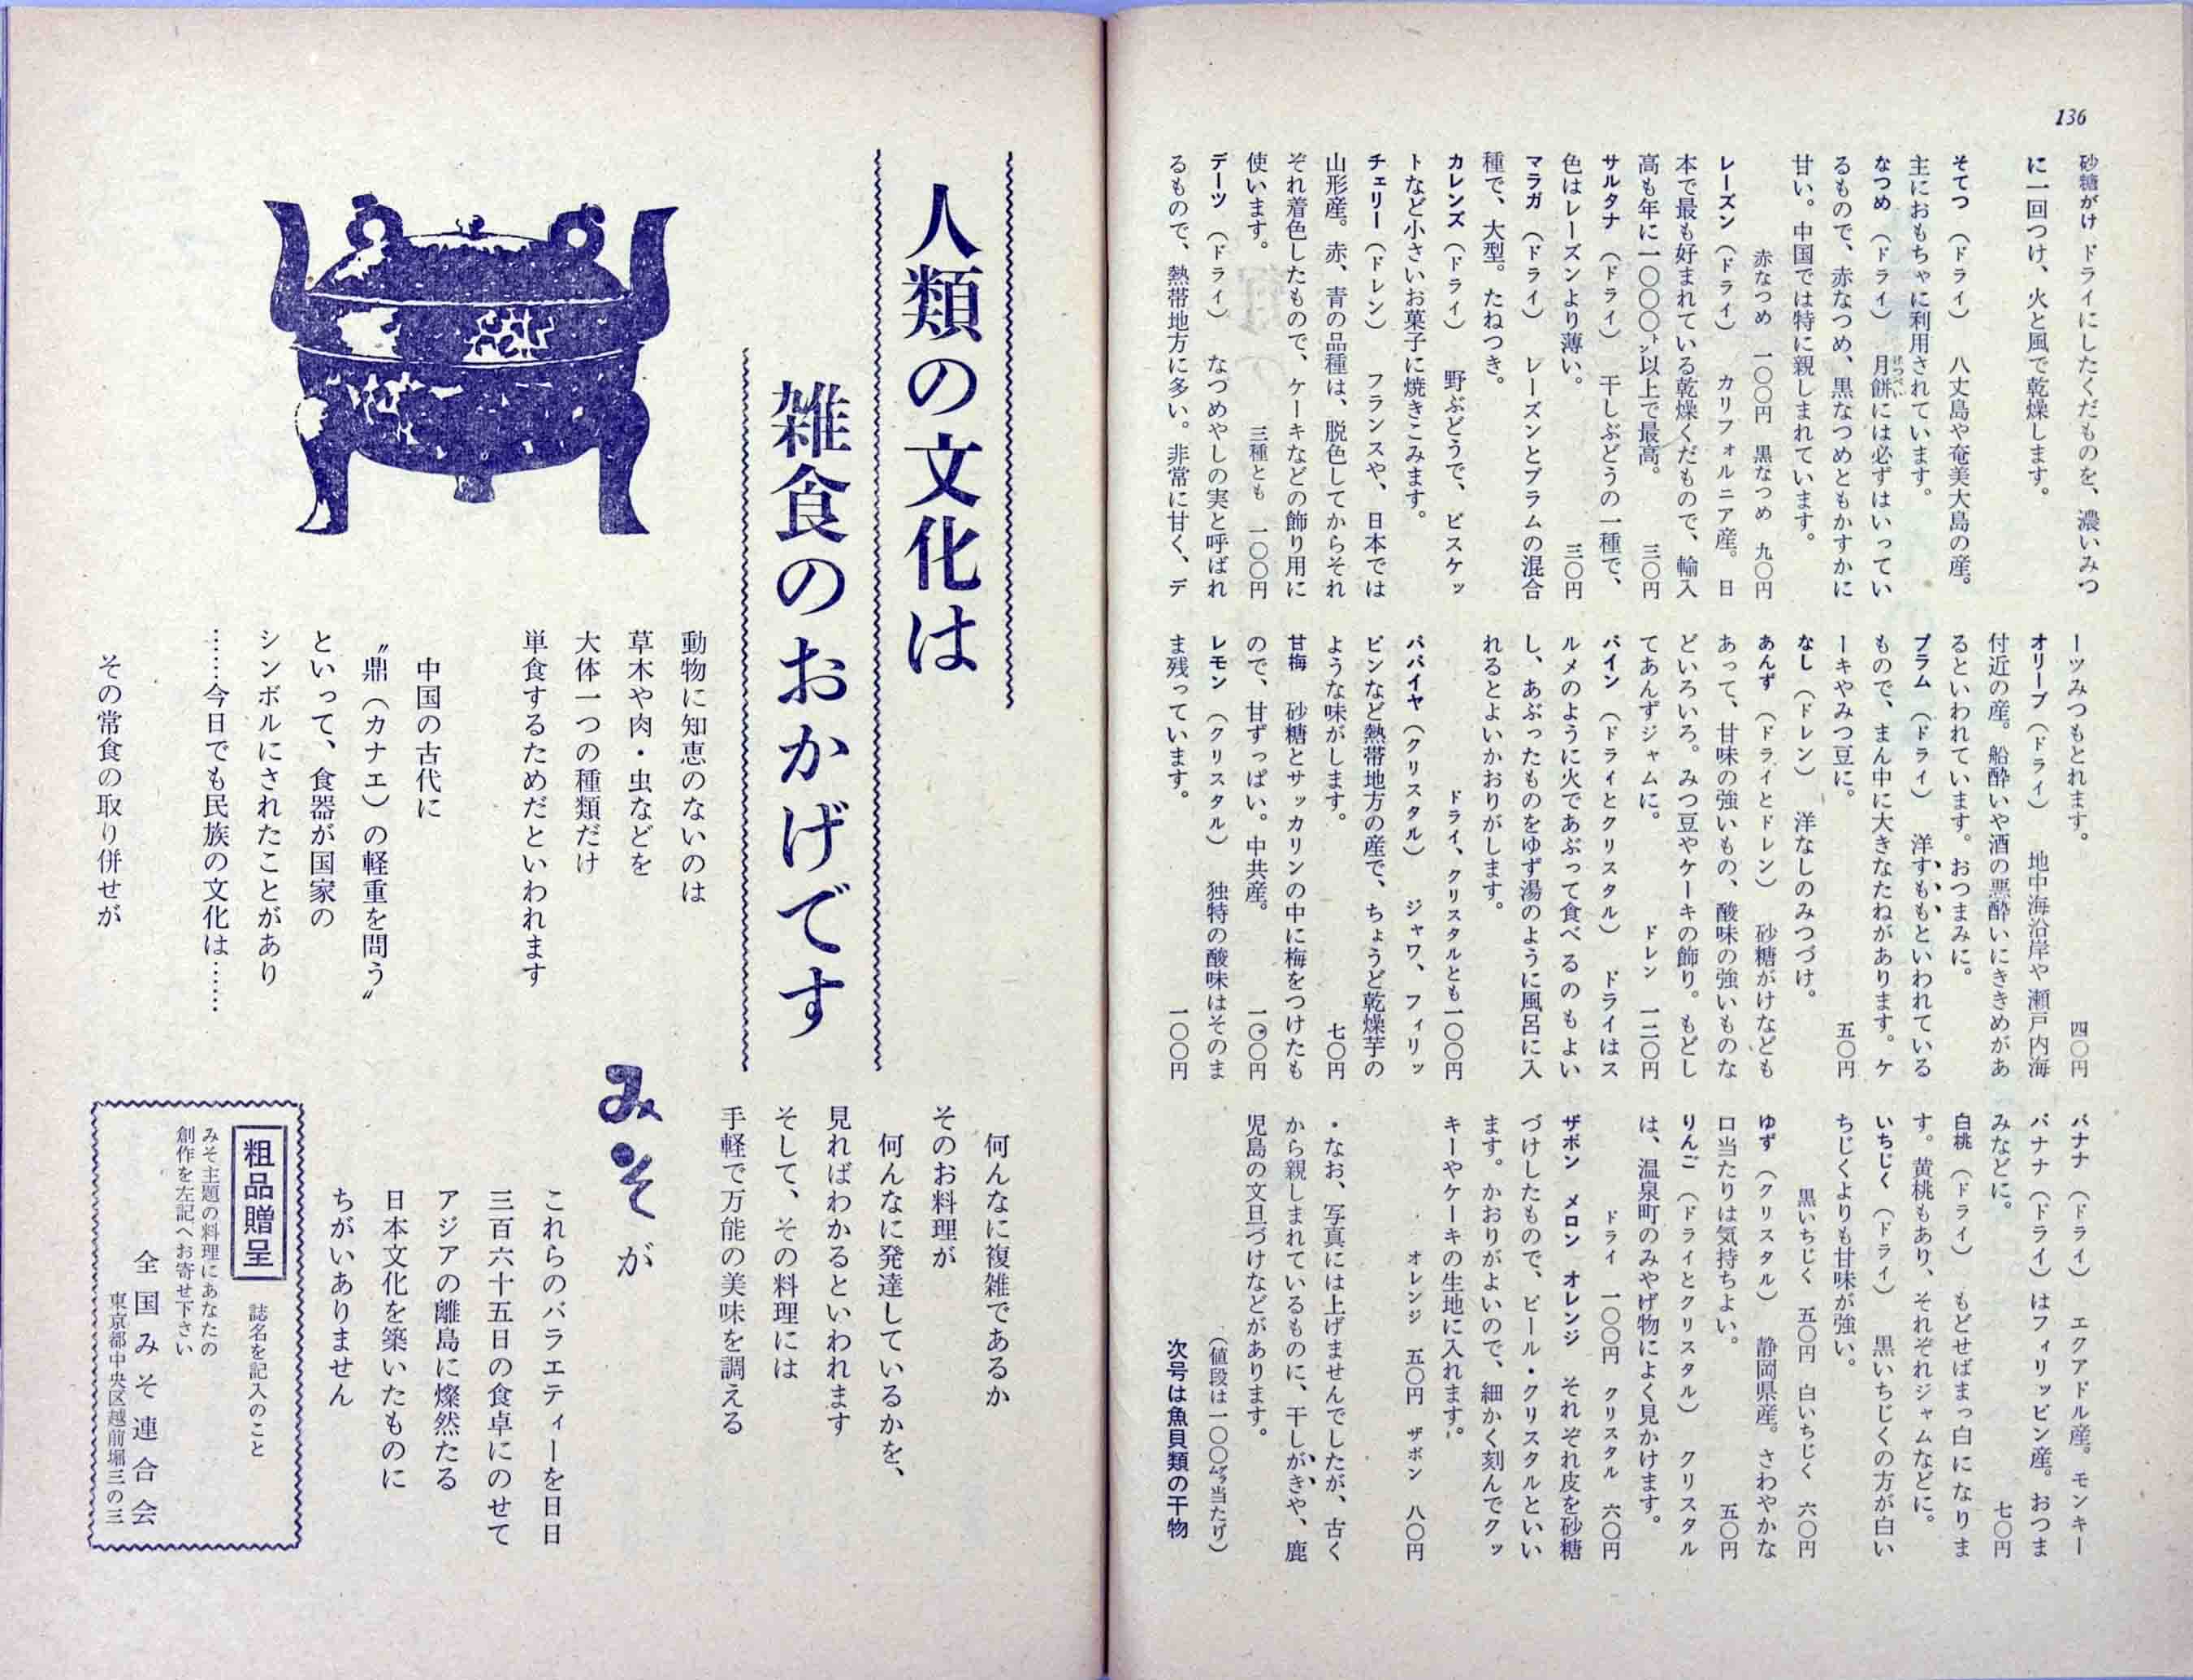 136
砂糖がけ ドライにしたくだものを、濃いみつ
に一回つけ、火と風で乾燥します。
そてつ（ドライ） 八丈島や奄美大島の産。
主におもちゃに利用されています。
なつめ（ドライ） 月餅には必ずはいってい
るもので、赤なつめ、黒なつめともかすかに
甘い。中国では特に親しまれています。
赤なつめ 一〇〇円 黒なつめ 九〇円
レーズン（ドライ） カリフォルニア産。日
本で最も好まれている乾燥くだもので、輸入
高も年に一〇〇〇トン以上で最高。 三〇円
サルタナ（ドライ） 干しぶどうの一種で、
色はレーズンより薄い。 三〇円
マラガ（ドライ） レーズンとプラムの混合
種で、大型。たねつき。
カレンズ（ドライ） 野ぶどうで、ビスケッ
トなど小さいお菓子に焼きこみます。
チェリー（ドレン） フランスや、日本では
山形産。赤、青の品種は、脱色してからそれ
ぞれ着色したもので、ケーキなどの飾り用に
使います。 三種とも 一〇〇円
デーツ（ドライ） なつめやしの実と呼ばれ
るもので、熱帯地方に多い。非常に甘く、デ
ーツみつもとれます。 四〇円
オリーブ（ドライ） 地中海沿岸や瀬戸内海
付近の産。船酔いや酒の悪酔いにききめがあ
るといわれています。おつまみに。
プラム（ドライ） 洋すももといわれている
もので、まん中に大きなたねがあります。ケ
ーキやみつ豆に。 五〇円
なし（ドレン） 洋なしのみつづけ。
あんず（ドライとドレン） 砂糖がけなども
あって、甘味の強いもの、酸味の強いものな
どいろいろ。みつ豆やケーキの飾り。もどし
てあんずジャムに。 ドレン 一二〇円
パイン（ドライとクリスタル） ドライはス
ルメのように火であぶって食べるのもよい
し、あぶったものをゆず湯のように風呂に入
れるとよいかおりがします。
ドライ、クリスタルとも一〇〇円
パパイヤ（クリスタル） ジャワ、フィリッ
ピンなど熱帯地方の産で、ちょうど乾燥芋の
ような味がします。 七〇円
甘梅 砂糖とサッカリンの中に梅をつけたも
ので、甘ずっぱい。中共産。 一〇〇円
レモン（クリスタル） 独特の酸味はそのま
ま残っています。 一〇〇円
バナナ（ドライ） エクアドル産。モンキー
バナナ（ドライ）はフィリッピン産。おつま
みなどに。 七〇円
白桃（ドライ） もどせばまっ白になりま
す。黄桃もあり、それぞれジャムなどに。
いちじく（ドライ） 黒いちじくの方が白い
ちじくよりも甘味が強い。
黒いちじく 五〇円 白いちじく 六〇円
ゆず（クリスタル） 静岡県産。さわやかな
口当たりは気持ちよい。 五〇円
りんご（ドライとクリスタル） クリスタル
は、温泉町のみやげ物によく見かけます。
ドライ 一〇〇円 クリスタル 六〇円
ザボン メロン オレンジ それぞれ皮を砂糖
づけしたもので、ピール・クリスタルといい
ます。かおりがよいので、細かく刻んでクッ
キーやケーキの生地に入れます。
オレンジ 五〇円 ザボン 八〇円
・なお、写真には上げませんでしたが、古く
から親しまれているものに、干しがきや、鹿
児島の文旦づけなどがあります。
（値段は一〇〇グラム当たり）
次号は魚貝類の干物
人類の文化は
雑食のおかげです
動物に知恵のないのは
草木や肉・虫などを
大体一つの種類だけ
単食するためだといわれます
中国の古代に
〝鼎（カナエ）の軽重を問う〟
といって、食器が国家の
シンボルにされたことがあり
……今日でも民族の文化は……
その常食の取り併せが
何んなに複雑であるか
そのお料理が
何んなに発達しているかを、
見ればわかるといわれます
そして、その料理には
手軽で万能の美味を調える
みそが
これらのバラエティーを日日
三百六十五日の食卓にのせて
アジアの離島に燦然たる
日本文化を築いたものに
ちがいありません
粗品贈呈 誌名を記入のこと
みそ主題の料理にあなたの
創作を左記へお寄せ下さい
全国みそ連合会
東京都中央区越前堀三の三